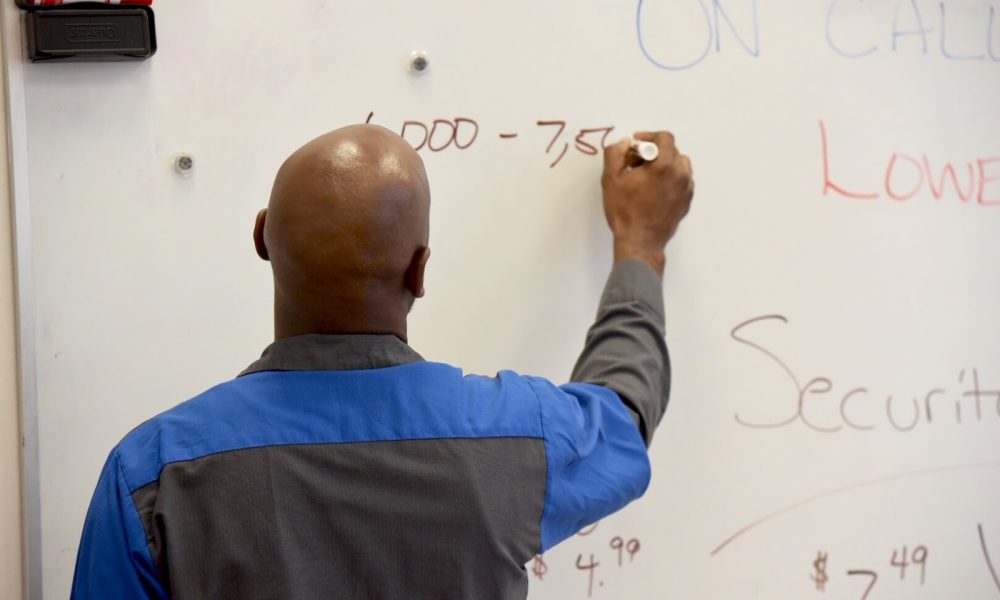 ON CALL
,000 - 7,5
LOWE
Securit
$ 4.99
$ 7.49